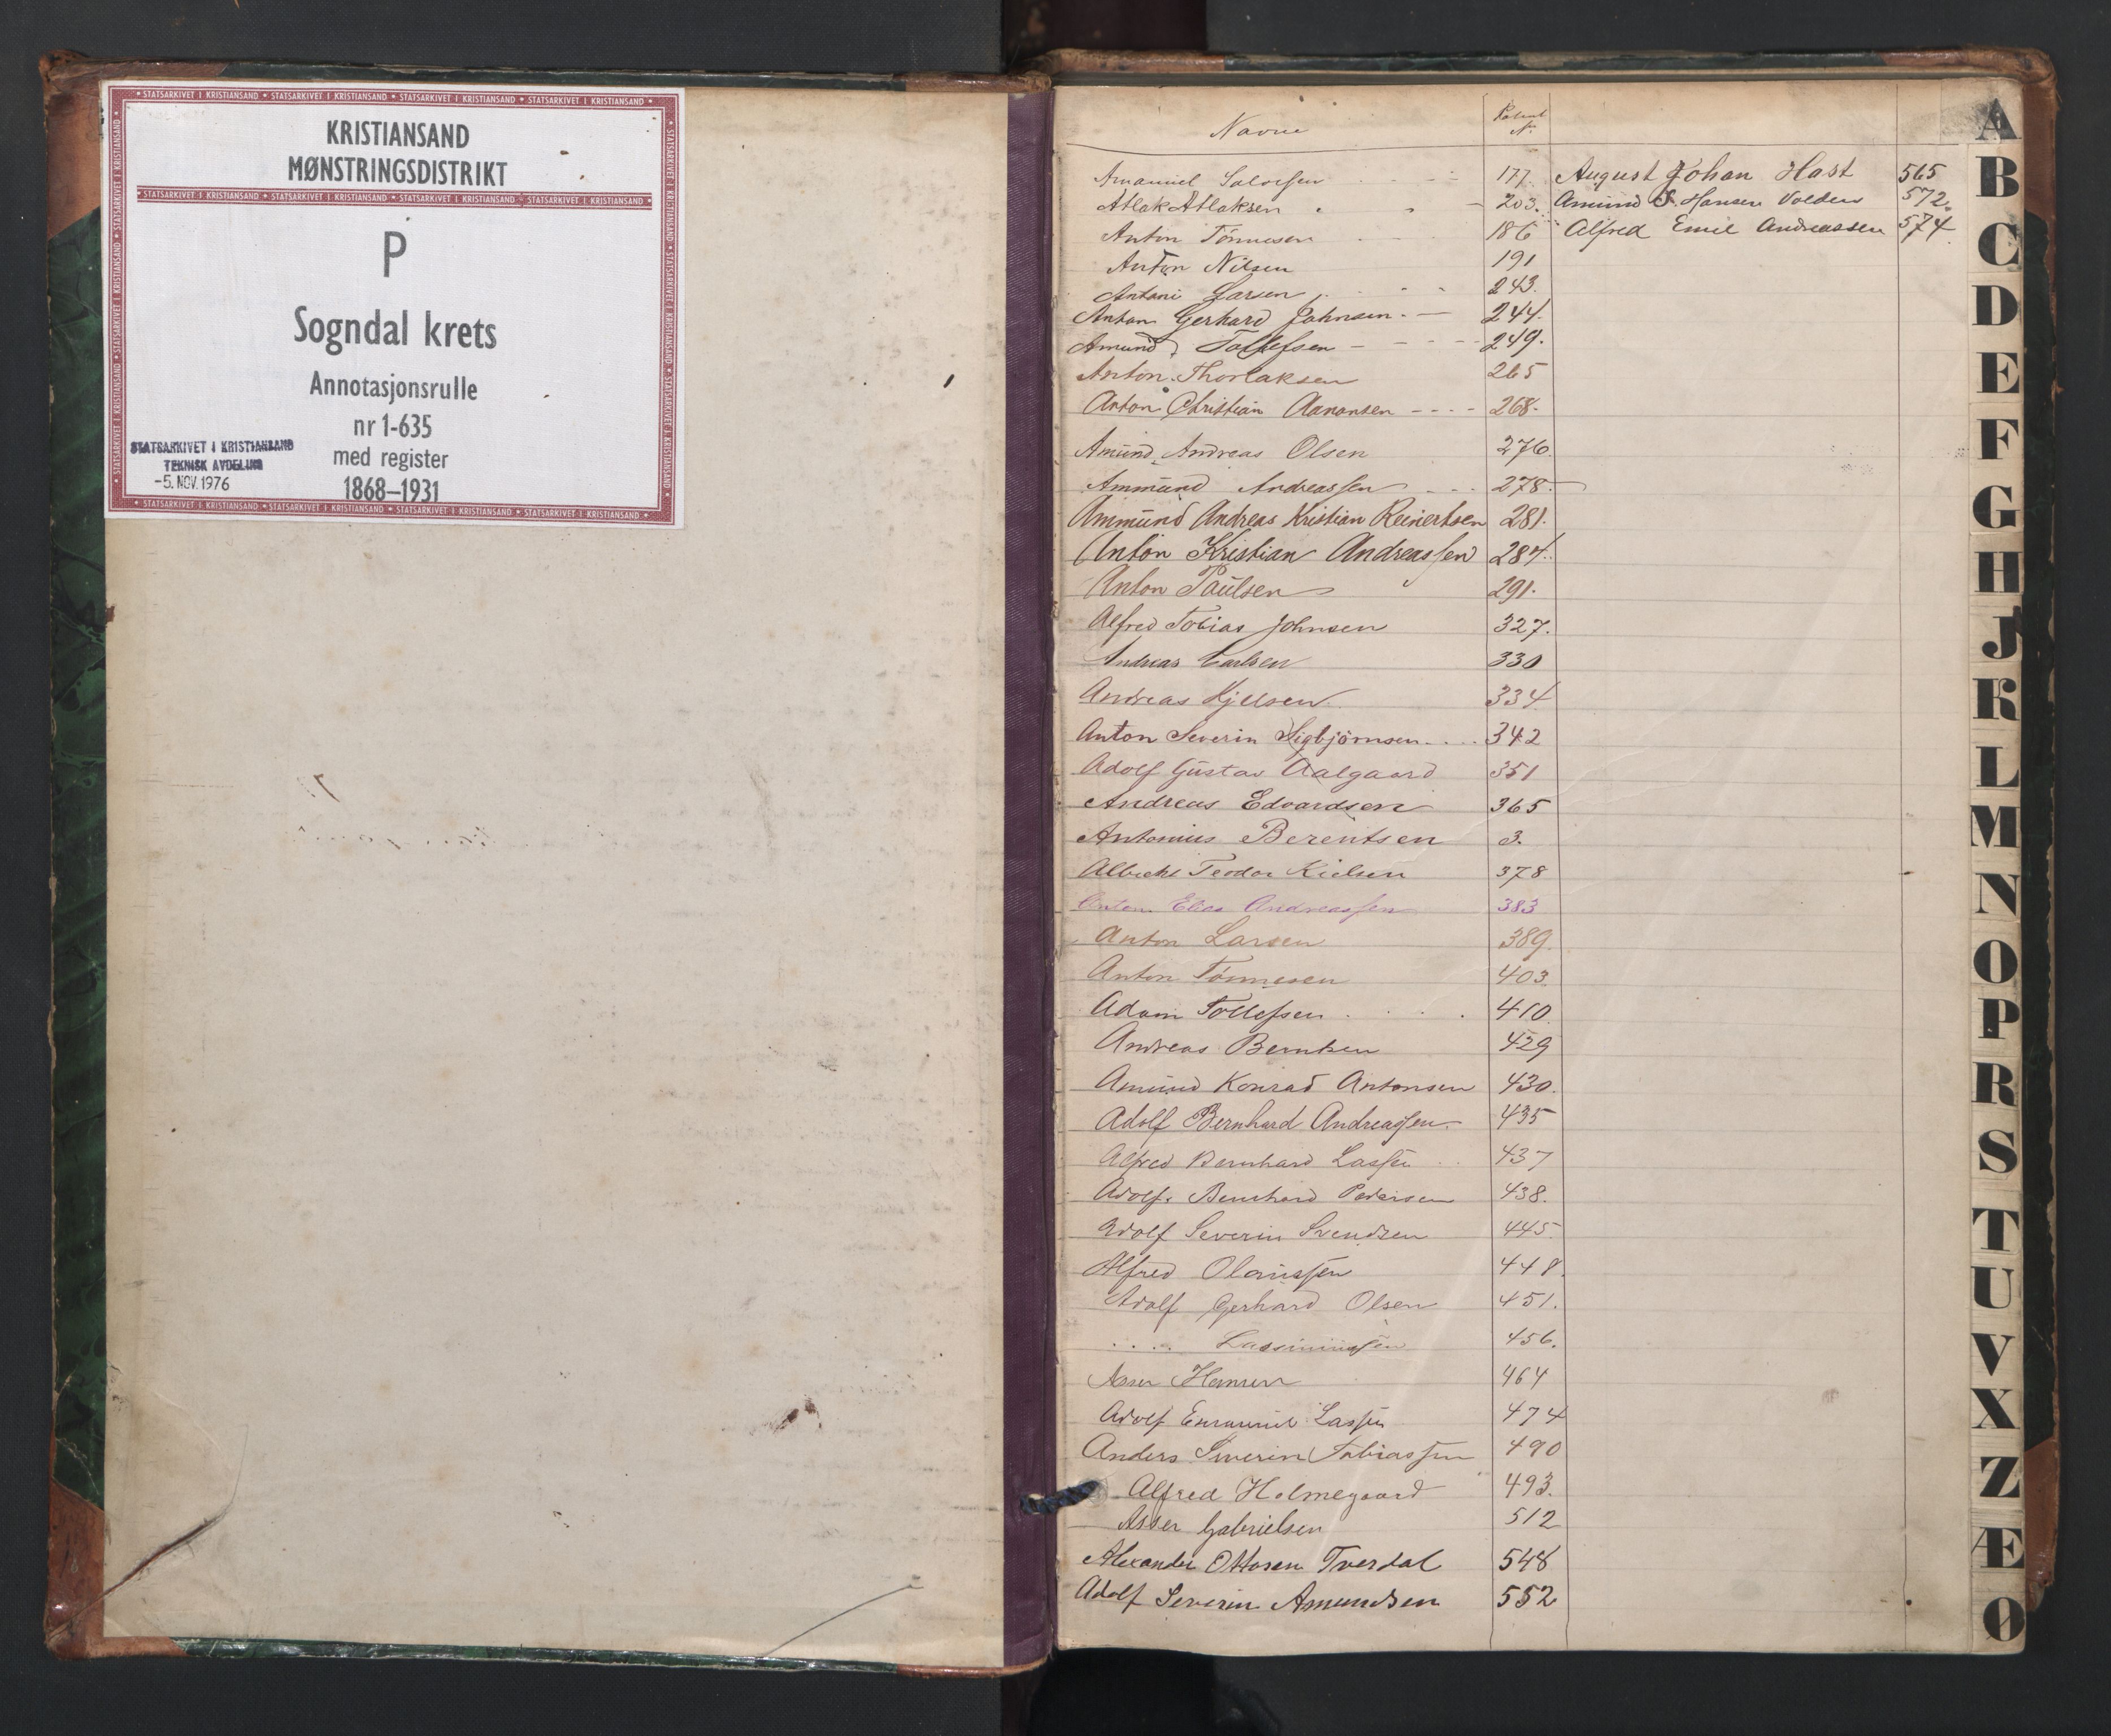 KRISTIANSAND
MØNSTRINGSDISTRIKT
P
Sogndal krets
Annotasjonsrulle
nr 1-635
med register
1868–1931
STATSARKIVET I KRISTIANSAND
TEKNISK AVDELING
-5. NOV. 1976
Navne
Amanuel Salvesen 177.
Atlak Atlaksen 203.
Anton Tönnesen 186
Anton Nilsen 191
Antoni Larsen 243.
Anton Gerhard Johnsen 244.
Amund Tollefsen 249.
Anton Thorlaksen 265
Anton Christian Aanonsen 268.
Amund Andreas Olsen 276.
Ammund Andreassen 278.
Ammund Andreas Kristian Reinertsen 281.
Anton Kristian Andreassen 287.
Anton Paulsen 291.
Alfred Tobias Johnsen 327.
Andreas Carlsen 330
Andreas Kjelsen 334
Anton Severin Sigbjörnsen 342
Adolf Gustav Aalgaard 351
Andreas Edvardsen 365
Antonius Berentsen 3.
Albricht Teodor Kielsen 378
Anton Elias Andreassen 383
Anton Larsen 389.
Anton Tönnesen 403.
Adam Tollefsen 410.
Andreas Berntsen 429
Amund Konrad Antonsen 430.
Adolf Bernhard Andreassen 435
Alfred Bernhard Lassen 437
Adolf Bernhard Pedersen 438.
Adolf Severin Svendsen 445.
Alfred Olaussen 448.
Adolf Gerhard Olsen 451.
456.
Asser Hansen 464
Adolf Emanuel Lassen 474
Anders Severin Tobiassen 490
Alfred Holmegaard 493.
Asser Gabrielsen 512
Alexander Ottosen Tverdal 548
Adolf Severin Amundsen 552
August Johan Hast 565
Amund S. Hansen Volden 572.
Alfred Emil Andreassen 574.
A
B
C
D
E
F
G
H
J
K
L
M
N
O
P
R
S
T
U
V
X
Z
Æ
Ø